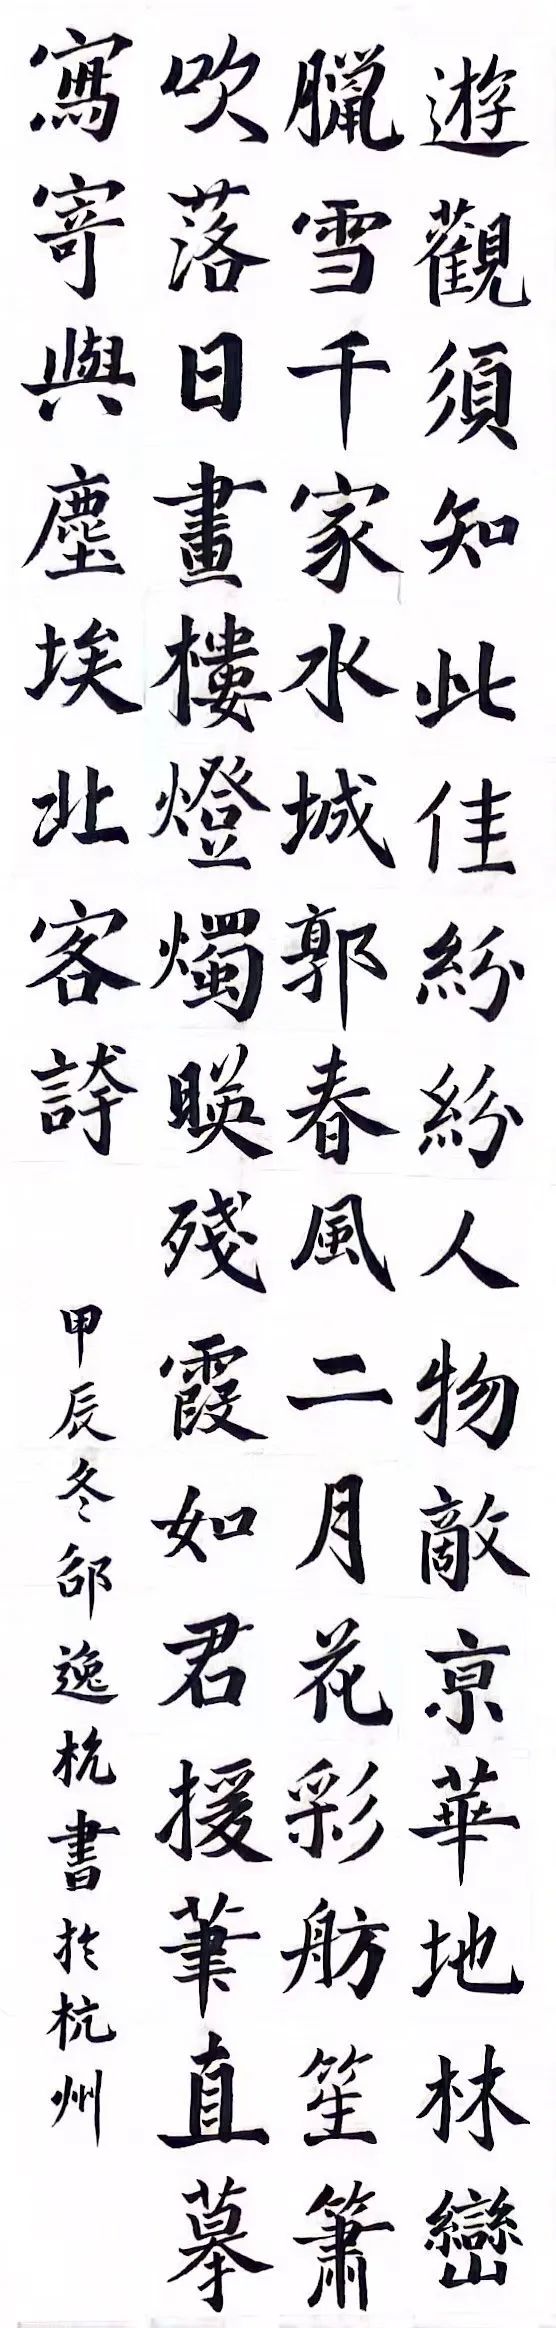 遊觀須知此佳紛紛人物敵京華地林巒
臘雪千家水城郭春風二月花彩舫笙簫
吹落日畫樓燈燭暎殘霞如君援筆直摹
寫寄與塵埃北客誇
甲辰冬邵逸杭書於杭州